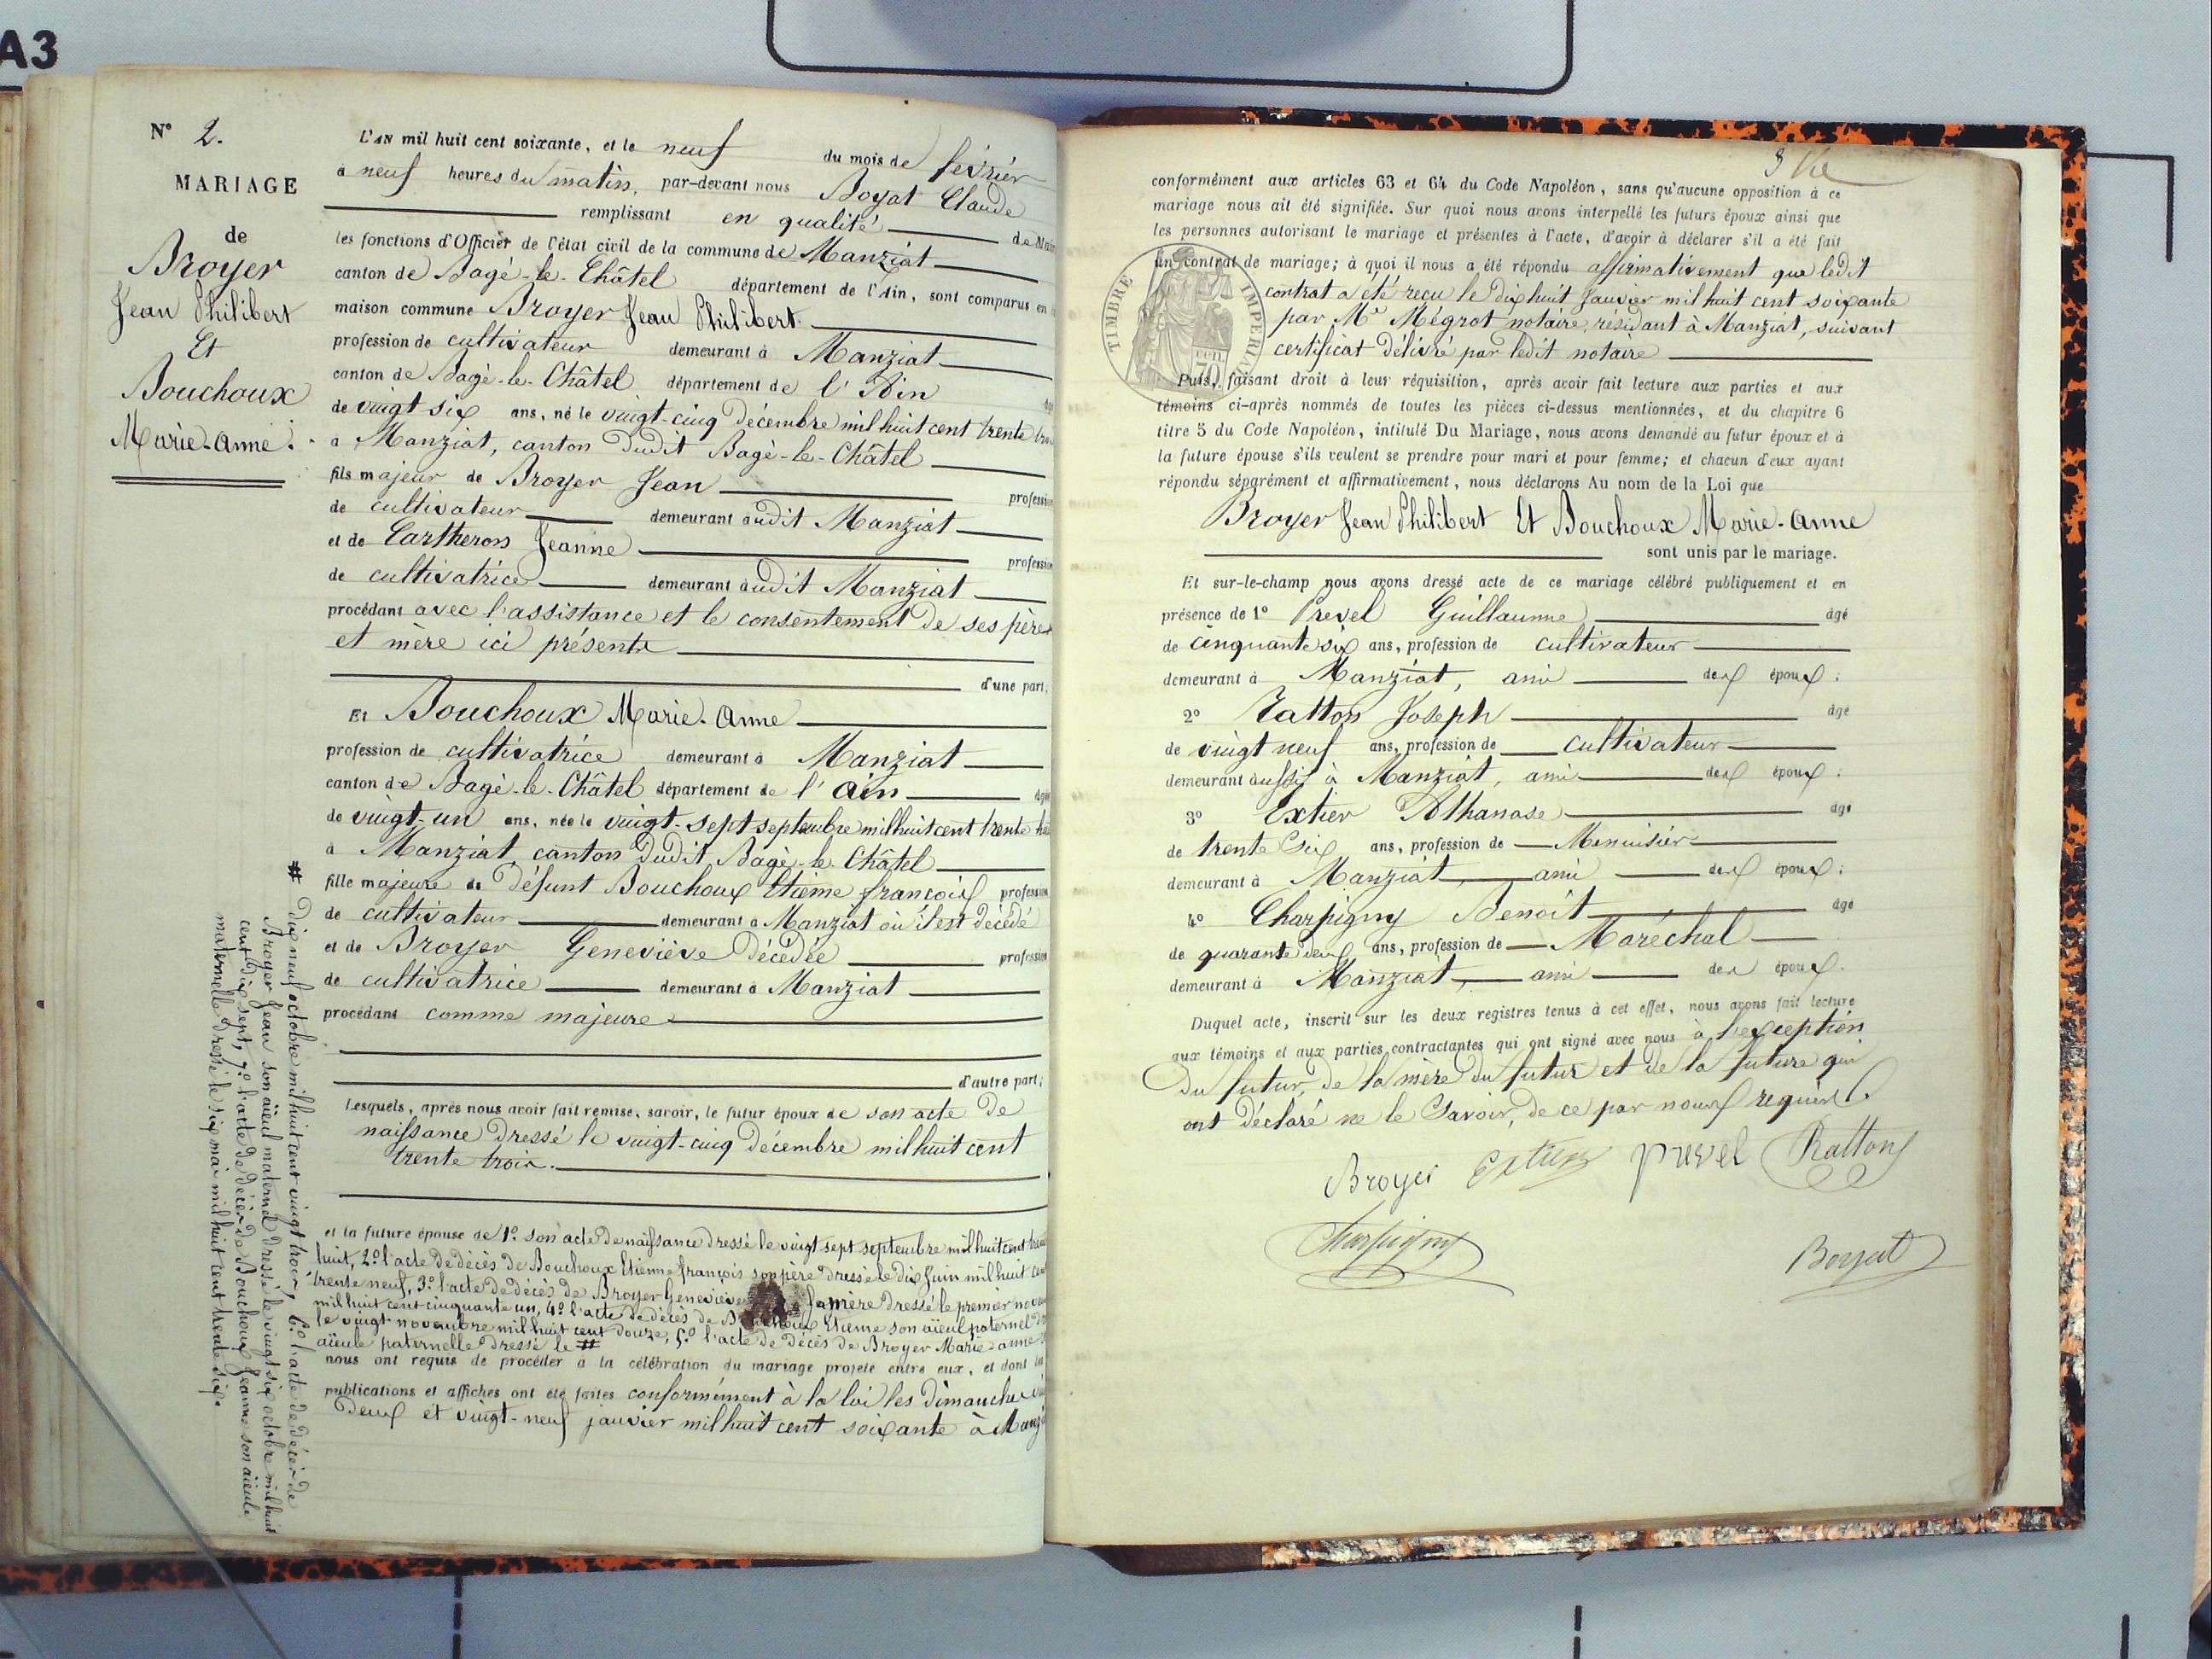 A3
N° 2.
MARIAGE
de
Broyer
Jean Philibert
Et
Bouchoux
Marie-Anne.
L'AN mil huit cent soixante, et le neuf du mois de février
à neuf heures du matin, par-devant nous Boyat Claude
remplissant en qualité de Mai
les fonctions d'Officier de l'état civil de la commune de Manziat
canton de Bagé-le-Châtel département de l'Ain, sont comparus en
maison commune Broyer Jean Philibert
profession de cultivateur demeurant à Manziat
canton de Bagé-le-Châtel département de l'Ain
de vingt six ans, né le vingt-cinq décembre mil huit cent trente troi
à Manziat, canton dudit Bagé-le-Châtel
fils majeur de Broyer Jean profession
de cultivateur demeurant audit Manziat
et de Cartheron Jeanne profession
de cultivatrice demeurant audit Manziat
procédant avec l'assistance et le consentement de ses père
et mère ici présents
d'une part,
Et Bouchoux Marie-Anne
profession de cultivatrice demeurant à Manziat
canton de Bagé-le-Châtel département de l'Ain âgée
de vingt-un ans, née le vingt-sept septembre mil huit cent trente hui
à Manziat, canton dudit Bagé-le-Châtel
fille majeure de défunt Bouchoux Etienne françois profession
de cultivateur demeurant à Manziat où il est décédé
et de Broyer Geneviève décédée profession
de cultivatrice demeurant à Manziat
procédant comme majeure
d'autre part;
Lesquels, après nous avoir fait remise, savoir, le futur époux de son acte de
naissance dressé le vingt-cinq décembre mil huit cent
trente trois.
et la future épouse de 1° son acte de naissance dressé le vingt sept septembre mil huit cent trente
huit, 2° l'acte de décès de Bouchoux Etienne françois son père dressé le dix Juin mil huit cent
trente neuf, 3° l'acte de décès de Broyer Geneviève sa mère dressé le premier nove
mil huit cent cinquante un, 4° l'acte de décès de Bouchoux Etienne son aïeul paternel
le vingt novembre mil huit cent douze, 5° l'acte de décès de Broyer Marie-anne
aïeule paternelle dressé le #
nous ont requis de procéder à la célébration du mariage projeté entre eux, et dont les
publications et affiches ont été faites conformément à la loi les dimanche
deux et vingt-neuf janvier mil huit cent soixante à Manzi
# dix neuf octobre mil huit cent vingt trois, 6° l'acte de décès de
Broyer Jean son aïeul maternel dressé le vingt six octobre mil huit
cent dix sept, 7° l'acte de décès de Bouchoux Jeanne son aïeule
maternelle dressé le six mai mil huit cent trente six.
conformément aux articles 63 et 64 du Code Napoléon, sans qu'aucune opposition à ce
mariage nous ait été signifiée. Sur quoi nous avons interpellé les futurs époux ainsi que
les personnes autorisant le mariage et présentes à l'acte, d'avoir à déclarer s'il a été fait
un contrat de mariage; à quoi il nous a été répondu affirmativement que ledit
contrat a été reçu le dix huit Janvier mil huit cent soixante
par Me Mégrot notaire, résidant à Manziat, suivant
certificat délivré par ledit notaire
TIMBRE IMPERIAL
cen 70
Puis, faisant droit à leur réquisition, après avoir fait lecture aux parties et aux
témoins ci-après nommés de toutes les pièces ci-dessus mentionnées, et du chapitre 6
titre 5 du Code Napoléon, intitulé Du Mariage, nous avons demandé au futur époux et à
la future épouse s'ils veulent se prendre pour mari et pour femme; et chacun d'eux ayant
répondu séparément et affirmativement, nous déclarons Au nom de la Loi que
Broyer Jean Philibert Et Bouchoux Marie-Anne
sont unis par le mariage.
Et sur-le-champ nous avons dressé acte de ce mariage célébré publiquement et en
présence de 1° Prevel Guillaume âgé
de cinquante six ans, profession de cultivateur
demeurant à Manziat, ami des époux;
2° Ratton Joseph âgé
de vingt neuf ans, profession de cultivateur
demeurant aussi à Manziat, ami des époux;
3° Extier Athanase âgé
de trente six ans, profession de Menuisier
demeurant à Manziat, ami des époux;
4° Charpigny Benoit âgé
de quarante deux ans, profession de Maréchal
demeurant à Manziat, ami des époux.
Duquel acte, inscrit sur les deux registres tenus à cet effet, nous avons fait lecture
aux témoins et aux parties contractantes qui ont signé avec nous à l'exception
du futur, de la mère du futur et de la future qui
ont déclaré ne le savoir, de ce par nous requis.
Broyer Extier prevel Ratton
Charpigny Boyat